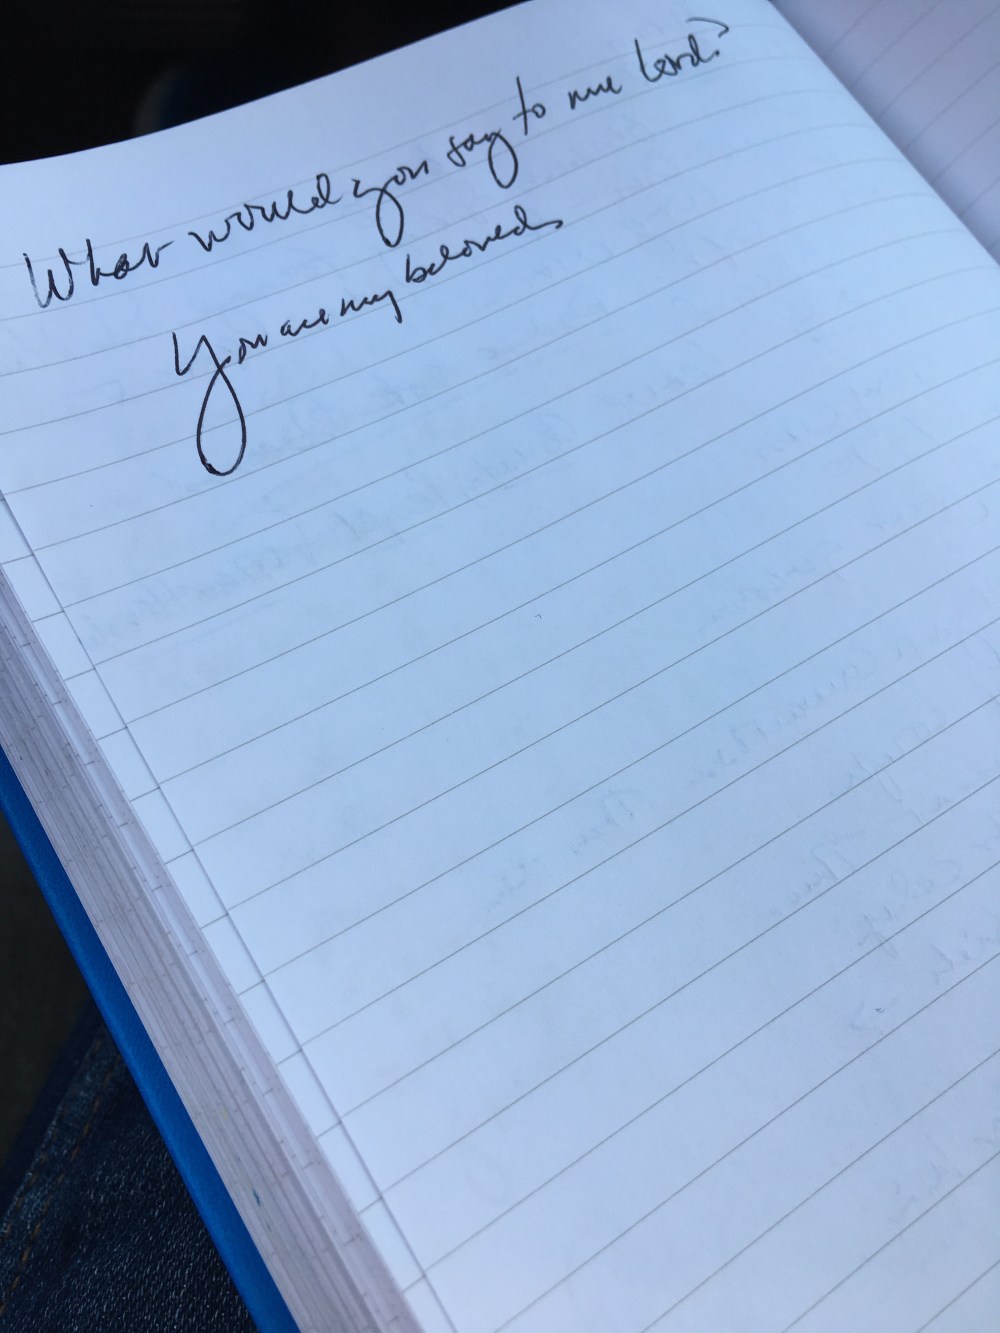 What would you say to me Lord?
You are my beloved